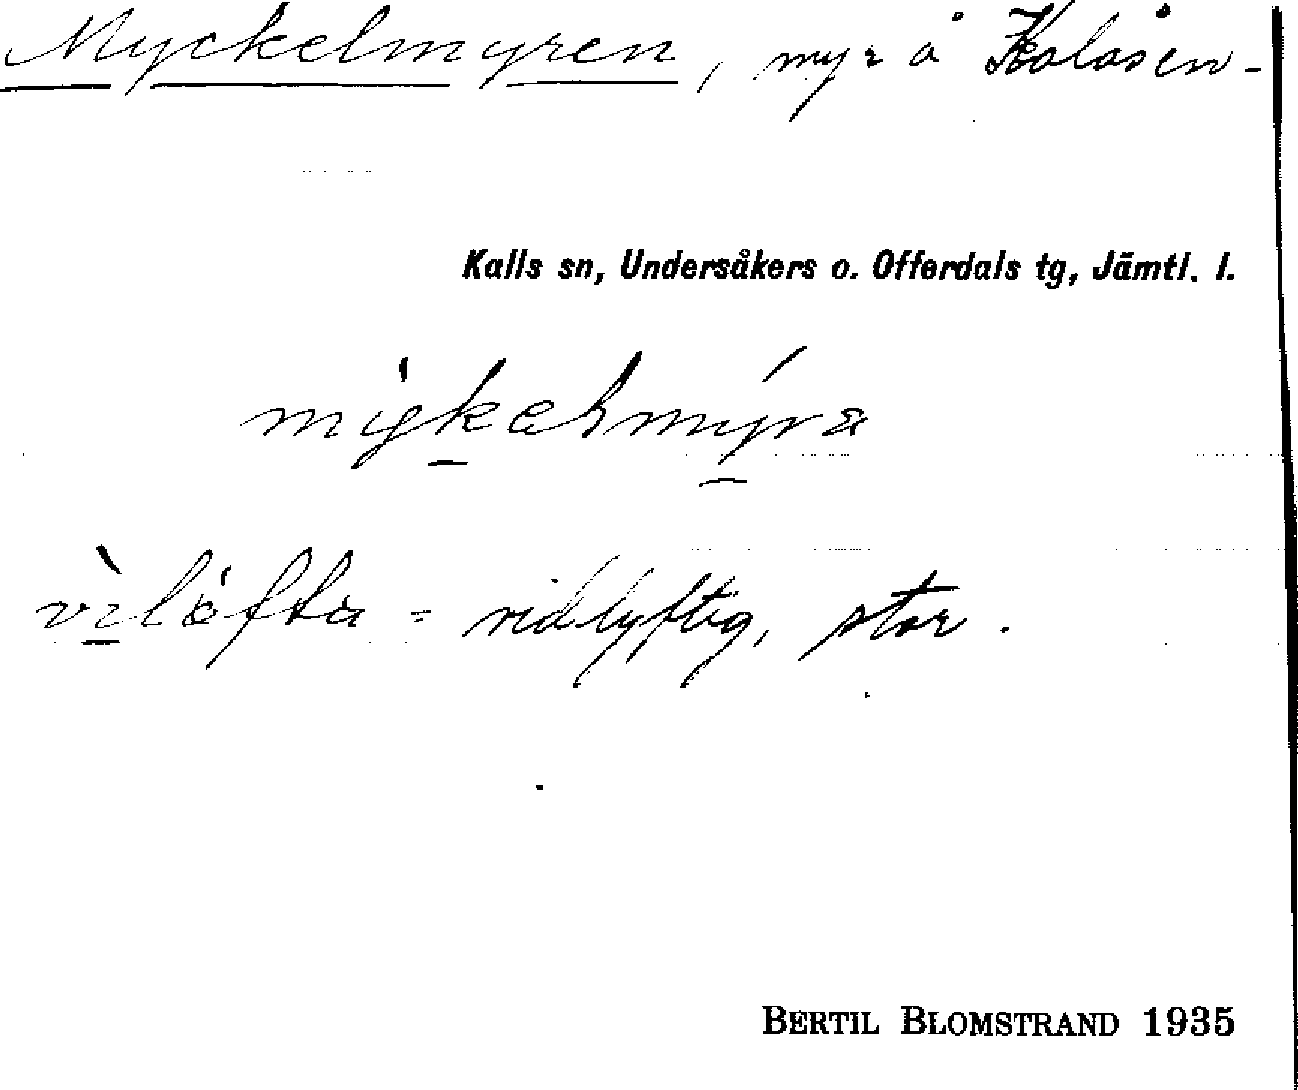 Myckelmyren, myr å Kolåsen-
Kalls sn, Undersåkers o. Offerdals tg, Jämtl. l.
= vidlyftig, stor.
BERTIL BLOMSTRAND 1935